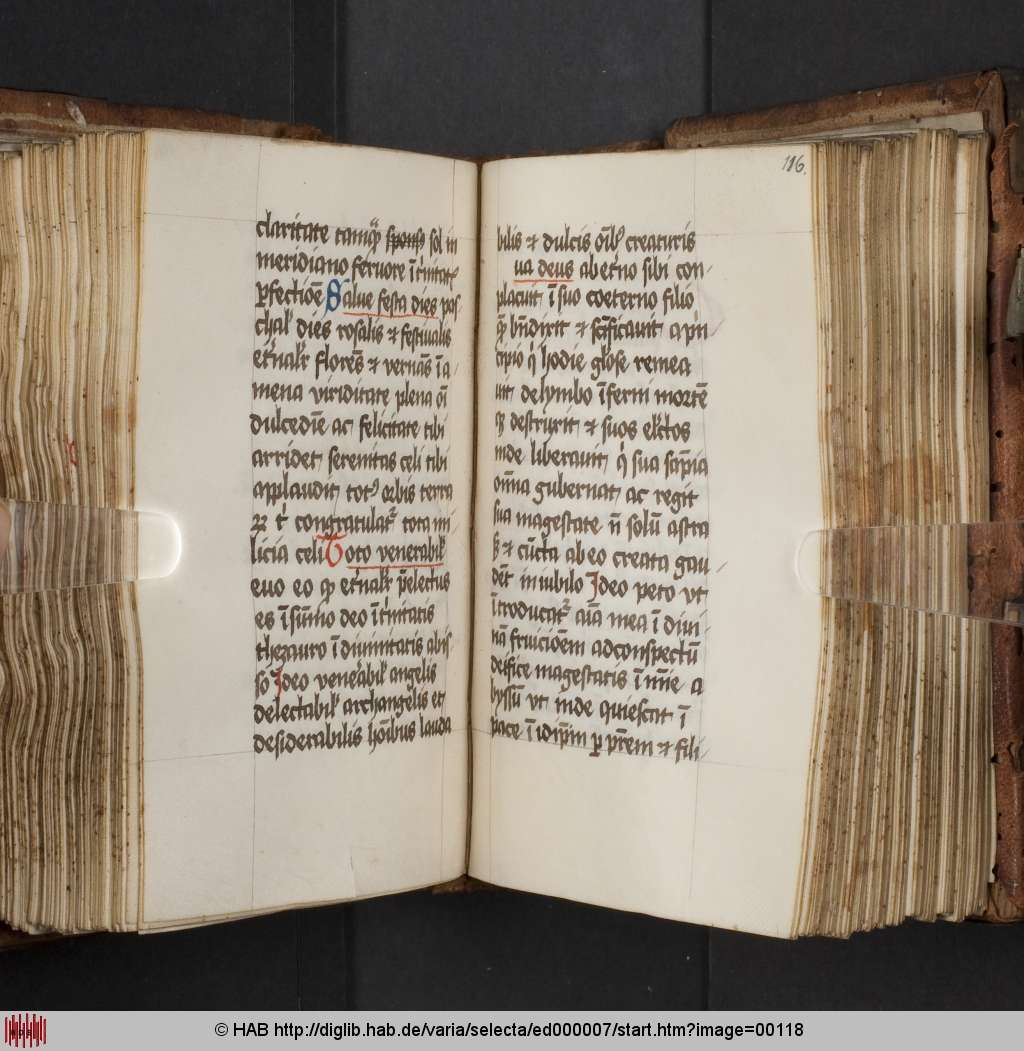 claritate tamqͣꝫ sponsꝰ sol in
meridiano feruore ī tͥnitatꝭ
ꝑfectiōe Salue festa dies pas
chalꝭ dies rosalis et festiualis
etͤnalꝭ florēs et vernās ī a-
mena viriditate plena oī
dulcedīe ac felicitate tibi
arridet serenitas celi tibi
applaudit totꝰ orbis terra
ꝝ tͥ congratulatᷣ tota mi
licia celi Toto venerabilꝭ
euo eo qꝫ etͤnalꝭ p̄electus
es ī sūmo deo ī tͥnitatis
thezauro ī diuinitatis abis
so Ideo venerabilꝭ angelis
delectabilꝭ archangelis et
desiderabilis hoībus lauda
116.
bilis et dulcis oībꝰ creaturis
ua deus ab etͤno sibi con-
placuit ī suo coeterno filio
qꝫ bn̄dixit et scīficauit a pͥn
cipio qͥ hodie gl'ose remea
uit de lymbo īferni mortē
qꝫ destruxit et suos el'ctos
inde liberauit qͥ sua sap̄ia
om̄a gubernat ac regit
sua magestate n̄ solū astra
sꝫ et cūcta ab eo creata gau-
dēt in iubilo Ideo peto vt
ītroducatᷣ aīa mea ī diui-
nā fruicioēm ad conspectū
deifice magestatis ī īmīe a
byssū vt inde quiescat ī
pace ī idip̄m ꝑ pr̄em et fili-
© HAB http://diglib.hab.de/varia/selecta/ed000007/start.htm?image=00118